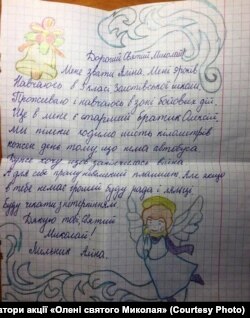 Дорогий Святий Миколай!
Мене звати Аліна. Мені 9 років.
Навчаюсь в класі школи.
Проживаю і навчаюсь в зоні бойових дій.
Ще в мене є старший братик Олексій,
ми пішки ходимо шість кілометрів
кожен день тому що нема автобуса.
Дуже хочу щоб закінчилась війна.
А для себе прошу планшет. Але якщо
в тебе немає грошей буду рада і ляльці.
Буду чекати з нетерпінням.
Дякую тобі, Святий
Миколай!
Мельник Аліна.
атори акції «Олені святого Миколая» (Courtesy Photo)